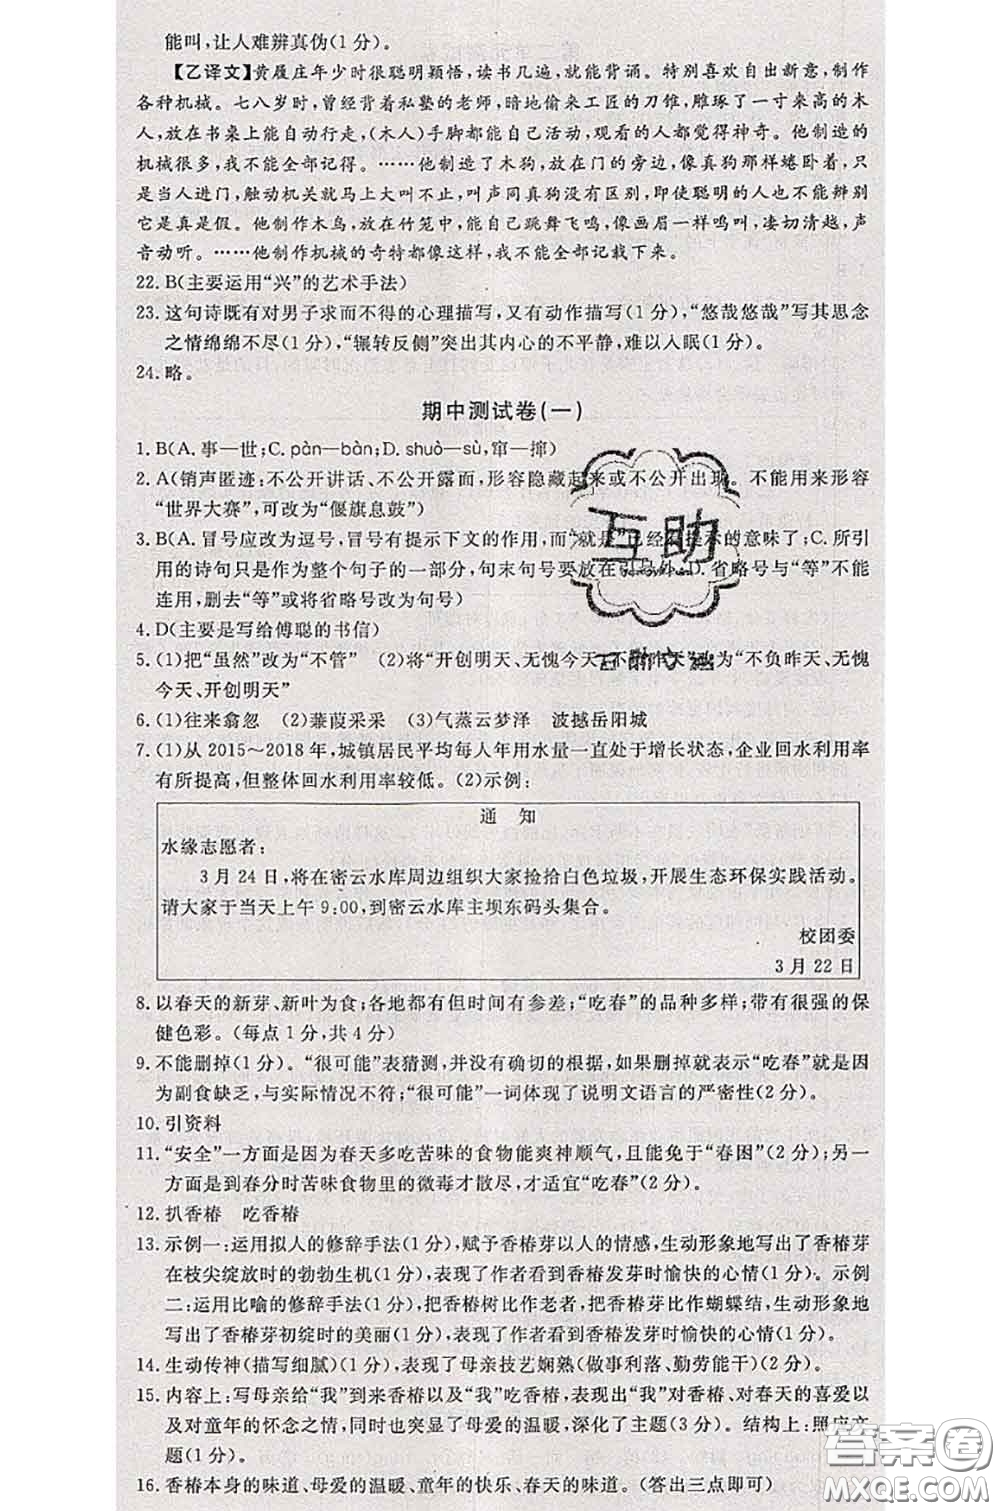 能叫,让人难辨真伪(1分)。
【乙译文】黄履庄年少时很聪明颖悟,读书几遍,就能背诵。特别喜欢自出新意,制作
各种机械。七八岁时,曾经背着私塾的老师,暗地偷来工匠的刀锥,雕琢了一寸来高的木
人,放在书桌上能自动行走,(木人)手脚都能自己活动,观看的人都觉得神奇。他制造的
机械很多,我不能全部记得。……他制造了木狗,放在门的旁边,像真狗那样蜷卧着,
只是当人进门,触动机关就马上大叫不止,叫声同真狗没有区别,即使聪明的人也不能辨别
它是真是假。他制作木鸟,放在竹笼中,能自己跳舞飞鸣,像画眉一样鸣叫,凄切清越,声
音动听。……他制作机械的奇特都像这样,我不能全部记载下来。
22. B(主要运用“兴”的艺术手法)
23. 这句诗既有对男子求而不得的心理描写,又有动作描写(1分),“悠哉悠哉”写其思念
之情绵绵不尽(1分),“辗转反侧”突出其内心的不平静,难以入眠(1分)。
24. 略。
期中测试卷(一)
1. B(A. 事—世;C. pàn—bàn;D. shuò—sù,窜—撺)
2. A(销声匿迹:不公开讲话、不公开露面,形容隐藏起来或不公开出现。不能用来形容
“世界大赛”,可改为“偃旗息鼓”)
3. B(A. 冒号应改为逗号,冒号有提示下文的作用,而“就是”已经有提示的意味了;C. 所引
用的诗句只是作为整个句子的一部分,句末句号要放在引号外;D. 省略号与“等”不能
连用,删去“等”或将省略号改为句号)
4. D(主要是写给傅聪的书信)
5. (1)把“虽然”改为“不管” (2)将“开创明天、无愧今天、不负昨天”改为“不负昨天、无愧
今天、开创明天”
6. (1)往来翕忽 (2)蒹葭采采 (3)气蒸云梦泽 波撼岳阳城
7. (1)从2015~2018年,城镇居民平均每人年用水量一直处于增长状态,企业回水利用率
有所提高,但整体回水利用率较低。(2)示例:
通 知
水缘志愿者:
3月24日,将在密云水库周边组织大家捡拾白色垃圾,开展生态环保实践活动。
请大家于当天上午9:00,到密云水库主坝东码头集合。
校团委
3月22日
8. 以春天的新芽、新叶为食;各地都有但时间有参差;“吃春”的品种多样;带有很强的保
健色彩。(每点1分,共4分)
9. 不能删掉(1分)。“很可能”表猜测,并没有确切的根据,如果删掉就表示“吃春”就是
因为副食缺乏,与实际情况不符;“很可能”一词体现了说明文语言的严密性(2分)。
10. 引资料
11. “安全”一方面是因为春天多吃苦味的食物能爽神顺气,且能免于“春困”(2分);另一
方面是到春分时苦味食物里的微毒才散尽,才适宜“吃春”(2分)。
12. 扒香椿 吃香椿
13. 示例一:运用拟人的修辞手法(1分),赋予香椿芽以人的情感,生动形象地写出了香椿芽
在枝尖绽放时的勃勃生机(1分),表现了作者看到香椿发芽时愉快的心情(1分)。示例
二:运用比喻的修辞手法(1分),把香椿树比作老者,把香椿芽比作蝴蝶结,生动形象地
写出了香椿芽初绽时的美丽(1分),表现了作者看到香椿发芽时愉快的心情(1分)。
14. 生动传神(描写细腻)(1分),表现了母亲技艺娴熟(做事利落、勤劳能干)(2分)。
15. 内容上:写母亲给“我”到来香椿以及“我”吃香椿,表现出“我”对香椿、对春天的喜爱以
及对童年的怀念之情,同时也突显了母爱的温暖,深化了主题(3分)。结构上:照应文
题(1分)。
16. 香椿本身的味道、母爱的温暖、童年的快乐、春天的味道。(答出三点即可)
互助
互助文化
答案圈
MXQE.COM